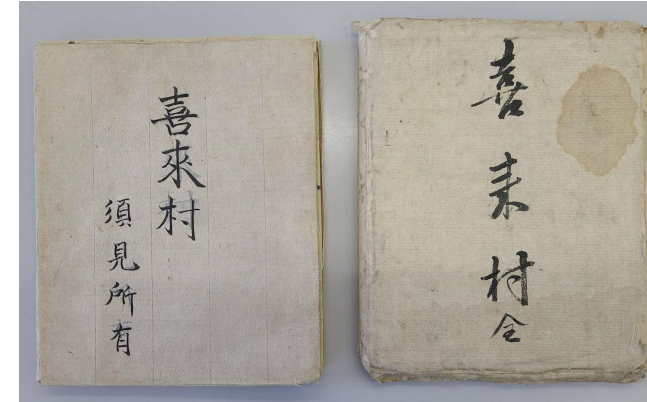 喜來村
須見所有
喜来村
全